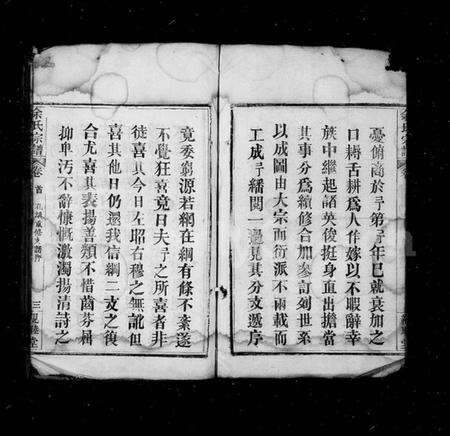 憂俯商於予弟予年已就衰加之
口耕舌耕為人作嫁以不暇辭幸
族中繼起諸英俊挺身直出擔當
其事分為續修合加參訂列世系
以成圖由大宗而衍派不兩載而
工成予繙閱一過見其分支遞序
竟委窮源若網在綱有條不紊遂
不覺狂喜竟日夫予之所喜者非
徒喜其今日左昭右穆之無訛但
喜其他日仍還我信綱二支之後
合尤喜其表揚善類不惜齒芬屈
抑卑污不辭慷慨激濁揚清詩之
余氏宗譜
卷首
三
堂